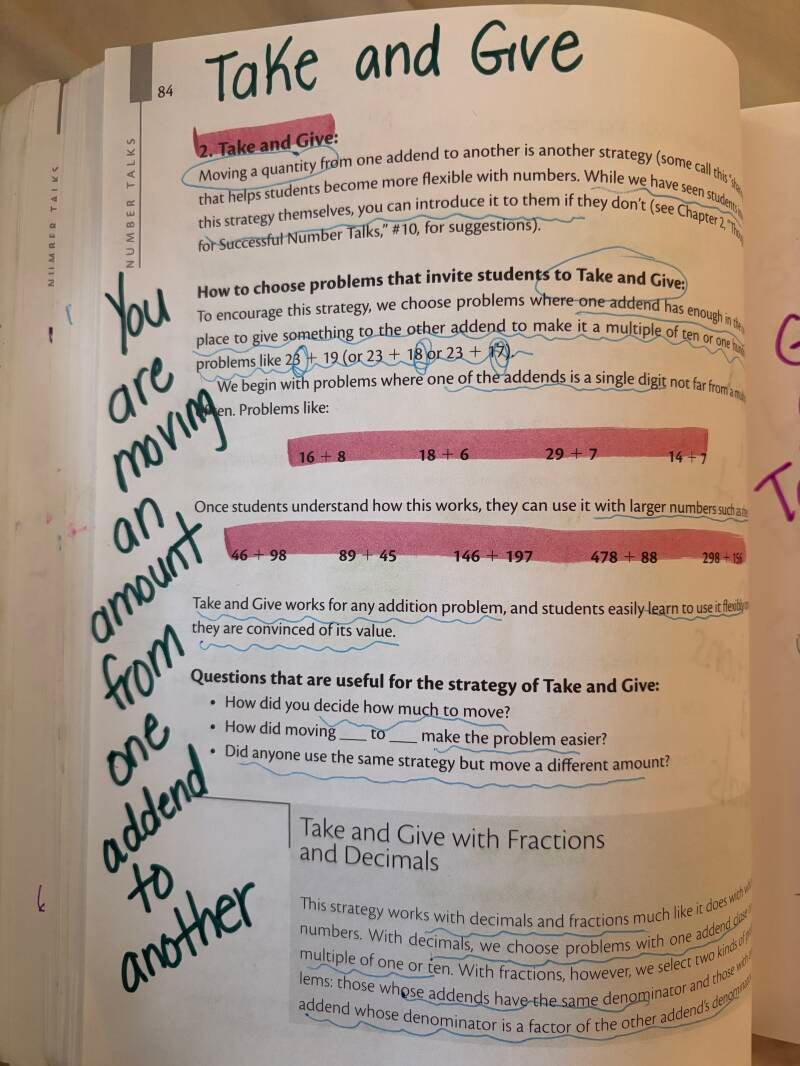 Take and Give
84
NUMBER TALKS
NUMBER TALKS
2. Take and Give:
Moving a quantity from one addend to another is another strategy (some call this
that helps students become more flexible with numbers. While we have seen students
this strategy themselves, you can introduce it to them if they don't (see Chapter 2,
for Successful Number Talks," #10, for suggestions).
How to choose problems that invite students to Take and Give:
To encourage this strategy, we choose problems where one addend has enough in the
place to give something to the other addend to make it a multiple of ten or one
problems like 23 + 19 (or 23 + 18 or 23 + 17).
We begin with problems where one of the addends is a single digit not far from a
ten. Problems like:
16 + 8 18 + 6 29 + 7 14 + 7
Once students understand how this works, they can use it with larger numbers such as
46 + 98 89 + 45 146 + 197 478 + 88 298 + 156
Take and Give works for any addition problem, and students easily learn to use it flexibly
they are convinced of its value.
Questions that are useful for the strategy of Take and Give:
• How did you decide how much to move?
• How did moving ___ to ___ make the problem easier?
• Did anyone use the same strategy but move a different amount?
Take and Give with Fractions
and Decimals
This strategy works with decimals and fractions much like it does with
numbers. With decimals, we choose problems with one addend close
multiple of one or ten. With fractions, however, we select two kinds of
lems: those whose addends have the same denominator and those with
addend whose denominator is a factor of the other addend's
You
are
moving
an
amount
from
one
addend
to
another